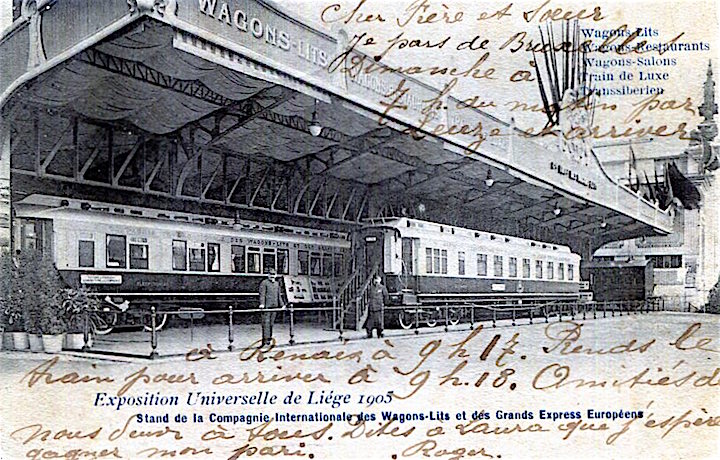 WAGONS-LITS
Cher Frère et Sœur
Je pars de
Dimanche à
7 h du matin par
Leuze et arriver
Wagons-Lits
Wagons-Restaurants
Wagons-Salons
Train de Luxe
Transsibérien
à Renaix à 9 h 17. Prends le
train pour arriver à 9 h. 18. Amitiés de
Exposition Universelle de Liége 1905
Stand de la Compagnie Internationale des Wagons-Lits et des Grands Express Européens
nous à tous. Dites à Laura que j'espère
gagner mon pari. Roger.